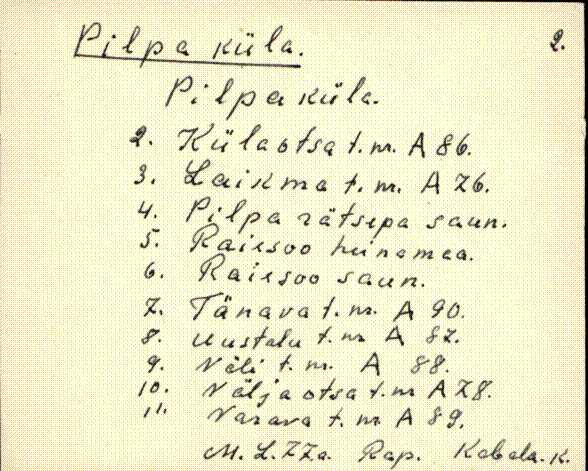 Pilpa küla. 2.
Pilpa küla.
2. Külaotsa t. nr. A 86.
3. Laikma t. nr. A 76.
4. Pilpa rätsepa saun.
5. Raiesoo heinamaa.
6. Raiesoo saun.
7. Tänava t. nr. A 90.
8. Uustalu t. nr A 87.
9. Näli t. nr. A 88.
10. Väljaotsa t. nr A 78.
11. Varava t. nr A 89.
M. L. Rap. Kabala. K.